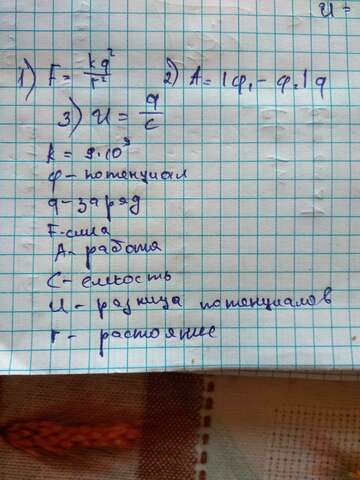 И =
1) F = kq²/r² 2) A = |φ₁ - φ₂| q
3) И = q/c
k = 9·10⁹
φ - потенциал
q - заряд
F - сила
A - работа
C - емкость
И - разница потенциалов
r - растояние